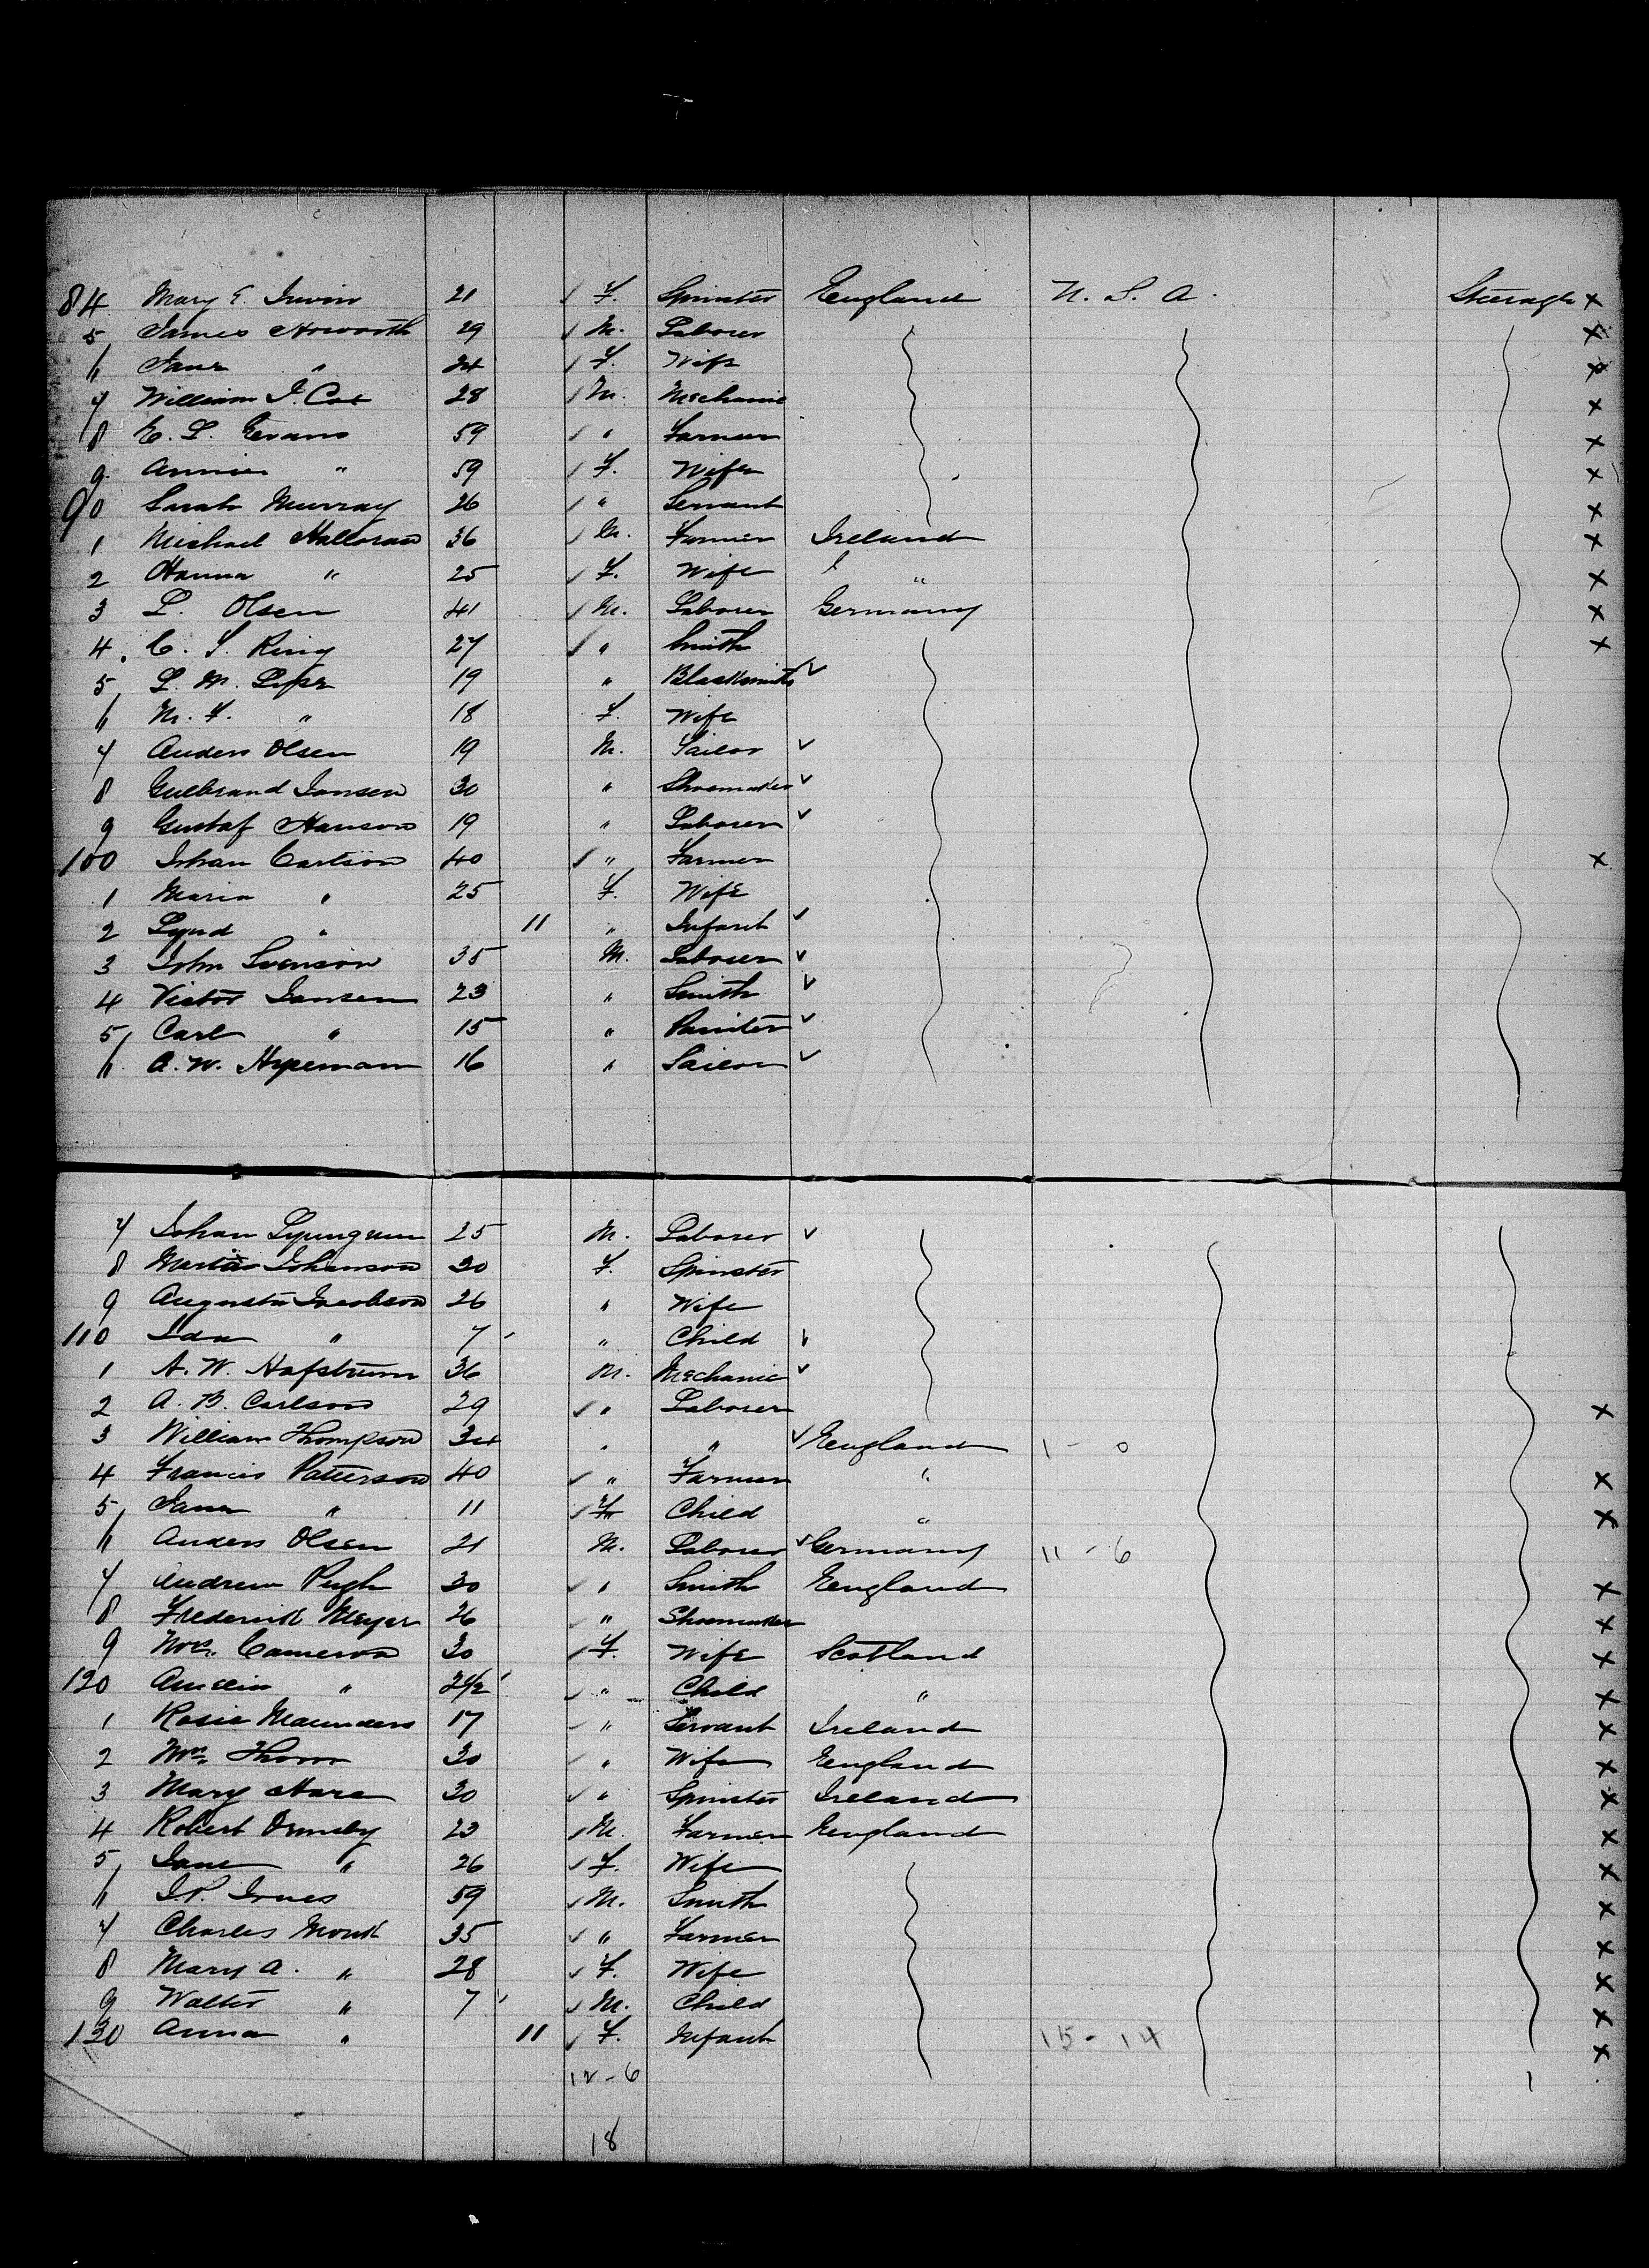 84 Mary E. Irwin 21 F. Spinster England U. S. A. Steerage x
5 James Howorth 29 M. Laborer x
6 Jane " 24 F. Wife x
7 William J. Cox 28 M. Mechanic x
8 E. L. Evans 59 " Farmer x
9 Annie " 59 F. Wife x
90 Sarah Murray 26 " Servant x
1 Michael Halloran 36 M. Farmer Ireland x
2 Hanna " 25 F. Wife " x
3 L. Olsen 41 M. Laborer Germany x
4 C. S. Ring 27 " Smith x
5 L. M. 19 " Blacksmith
6 M. F. " 18 F. Wife
7 Anders Olsen 19 M. Sailor
8 Gulbrand Jansen 30 " Shoemaker
9 Gustaf Hanson 19 " Laborer
100 Johan Carlson 40 " Farmer x
1 Maria " 25 F. Wife
2 " 11 " Infant
3 John Svenson 35 M. Laborer
4 Victor Jansen 23 " Smith
5 Carl " 15 " Painter
6 A. W. 16 " Sailor
7 Johan 25 M. Laborer
8 Martin Johanson 20 F. Spinster
9 Augusta Jacobson 26 " Wife
110 Ida " 7 " Child
1 A. W. Hafstrum 36 M. Mechanic
2 A. B. Carlson 29 " Laborer x
3 William Thompson 34 " " England 1 - 0
4 Francis Patterson 40 " Farmer " x
5 Jane " 11 F. Child " x
6 Anders Olsen 21 M. Laborer Germany 11 - 6
7 Andrew Pugh 30 " Smith England x
8 Frederick Meyer 26 " Shoemaker x
9 Mrs. Cameron 30 F. Wife Scotland x
120 Amelia " 2 1/2 " Child " x
1 Rosie Maunders 17 " Servant Ireland x
2 Mrs. Thom 30 " Wife England x
3 Mary Hare 30 " Spinster Ireland x
4 Robert Ormsby 23 M. Farmer England x
5 Jane " 26 F. Wife x
6 J. P. 59 M. Smith x
7 Charles Monk 35 " Farmer x
8 Mary A. " 28 F. Wife x
9 Walter " 7 M. Child x
130 Anna " 11 F. Infant 15 - 14 x
12 - 6
18